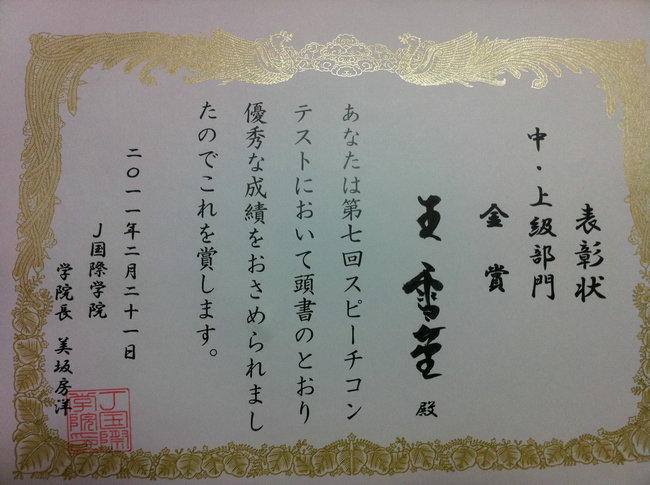 表彰状
中・上級部門
金賞
王
殿
あなたは第七回スピーチコン
テストにおいて頭書のとおり
優秀な成績をおさめられまし
たのでこれを賞します。
二〇一一年二月二十一日
J国際学院
学院長 美坂房洋
J国際
学院印